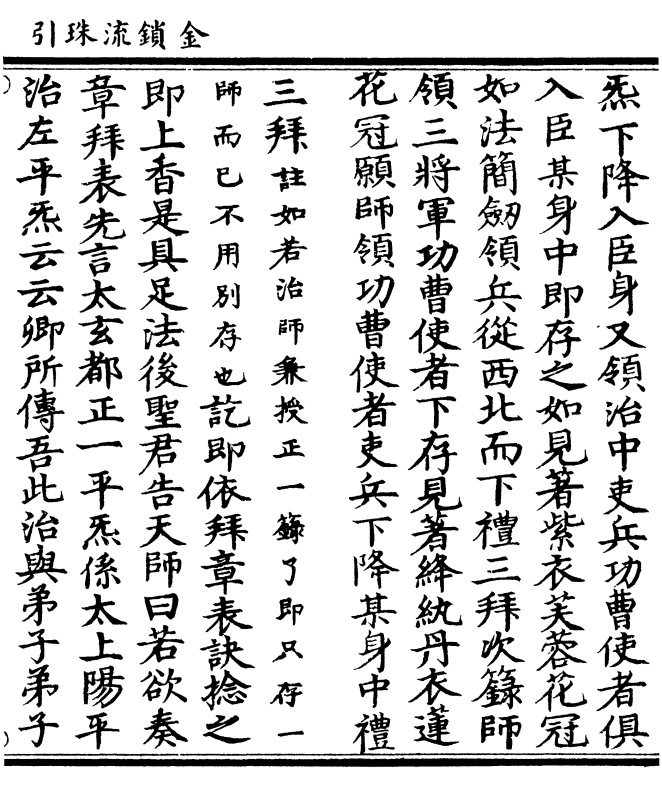 金鎖流珠引
炁下降入臣身又領治中吏兵功曹使者俱
入臣某身中即存之如見著紫衣芙蓉花冠
如法簡劒領兵從西北而下禮三拜次籙師
領三將軍功曹使者下存見著絳紈丹衣蓮
花冠願師領功曹使者吏兵下降某身中禮
三拜註如若治師兼授正一籙了即只存一
師而已不用別存也訖即依拜章表訣捻之
即上香是具足法後聖君告天師曰若欲奏
章拜表先言太玄都正一平炁係太上陽平
治左平炁云云卿所傳吾此治與弟子弟子